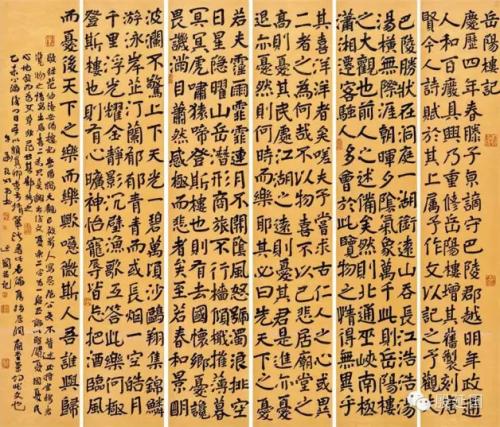 岳陽樓記
慶歷四年春滕子京謫守巴陵郡越明年政通
人和百廢具興乃重修岳陽樓增其舊製刻唐
賢今人詩賦于其上屬予作文以記之予觀夫
巴陵勝狀在洞庭一湖銜遠山吞長江浩浩湯
湯橫無際涯朝暉夕陰氣象萬千此則岳陽樓
之大觀也前人之述備矣然則北通巫峽南極
瀟湘遷客騷人多會於此覽物之情得無異乎
其喜洋洋者矣嗟夫予嘗求古仁人之心或異
二者之為何哉不以物喜不以己悲居廟堂之
高則憂其民處江湖之遠則憂其君是進亦憂
退亦憂然則何時而樂耶其必曰先天下之憂
若夫霪雨霏霏連月不開陰風怒號濁浪排空
日星隱曜山岳潛形商旅不行檣傾楫摧薄暮
冥冥虎嘯猿啼登斯樓也則有去國懷鄉憂讒
畏譏滿目蕭然感極而悲者矣至若春和景明
波瀾不驚上下天光一碧萬頃沙鷗翔集錦鱗
游泳岸芷汀蘭郁郁青青而或長煙一空皓月
千里浮光耀金靜影沉璧漁歌互答此樂何極
登斯樓也則有心曠神怡寵辱皆忘把酒臨風
而憂後天下之樂而樂歟噫微斯人吾誰與歸